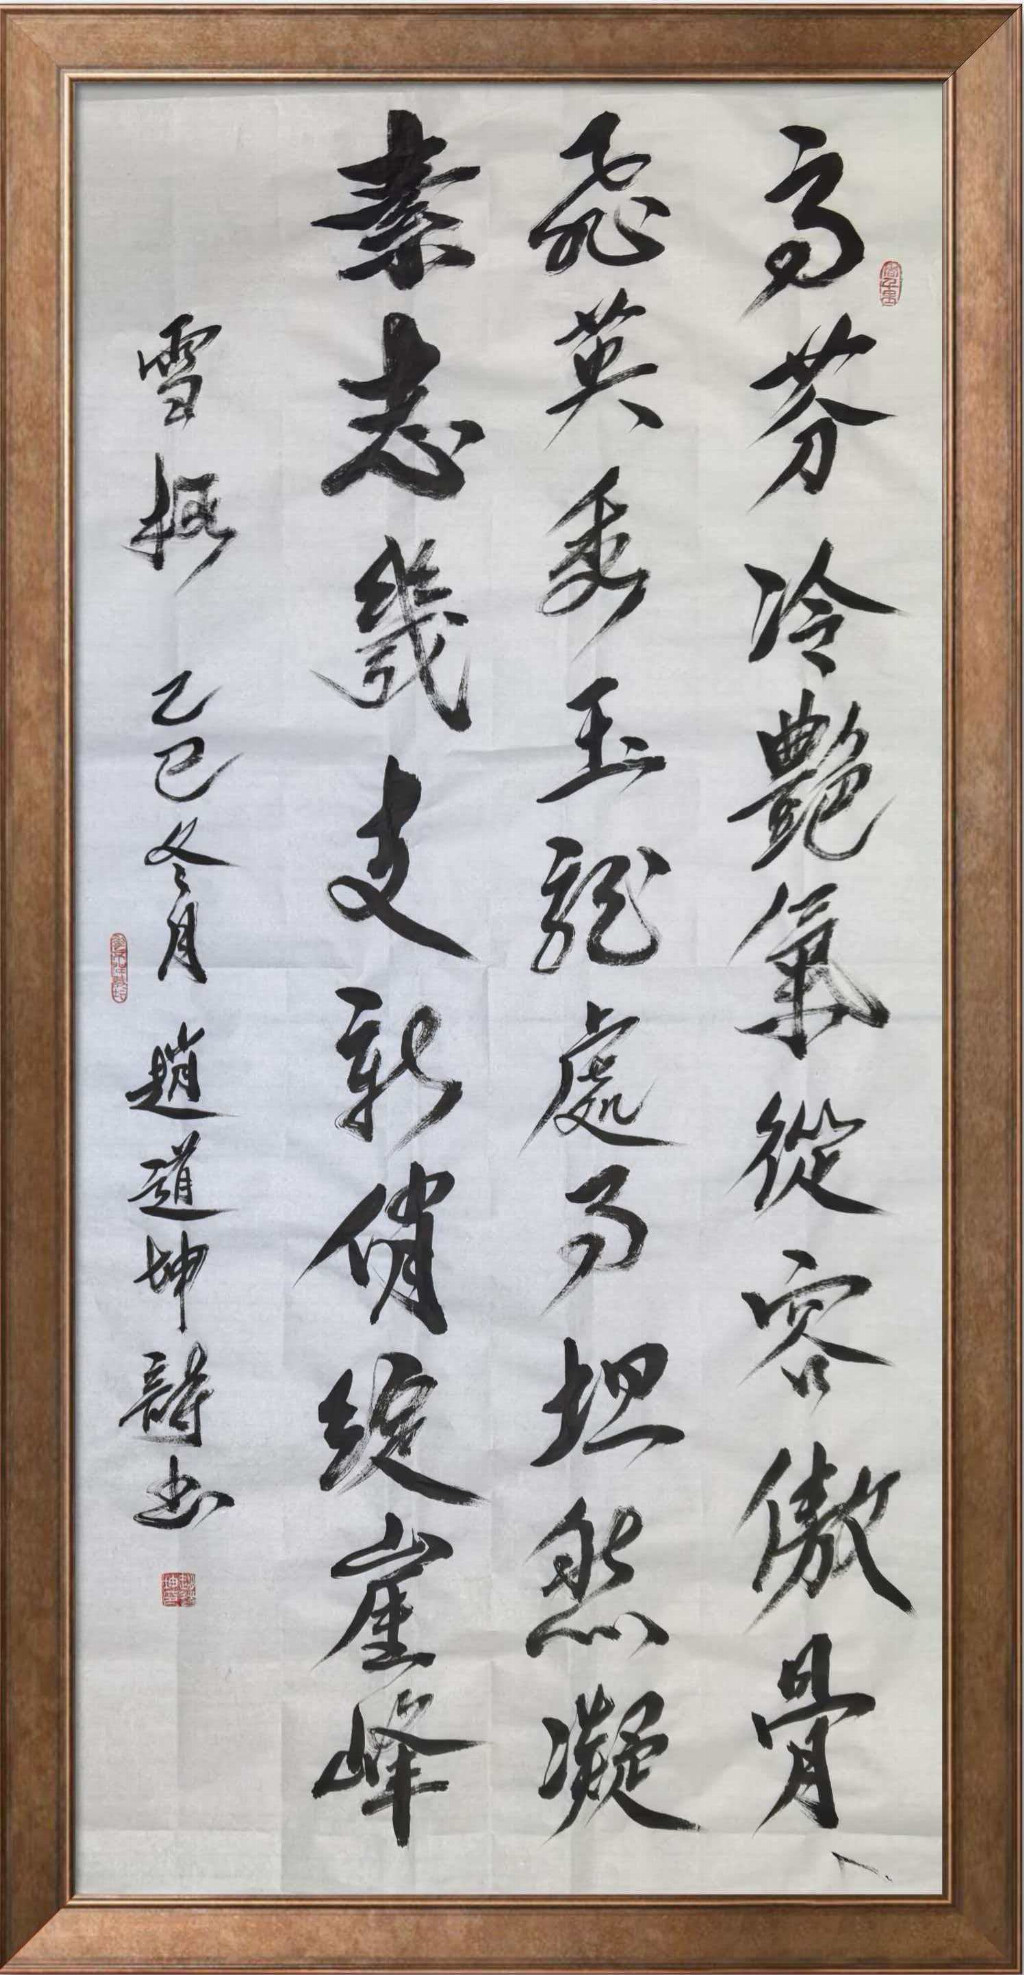 高芬冷艷氣從容傲骨
飛英委玉龍處坦然凝
素志幾支新俏綻崖峰
雪梅 乙巳冬月 趙道坤詩书